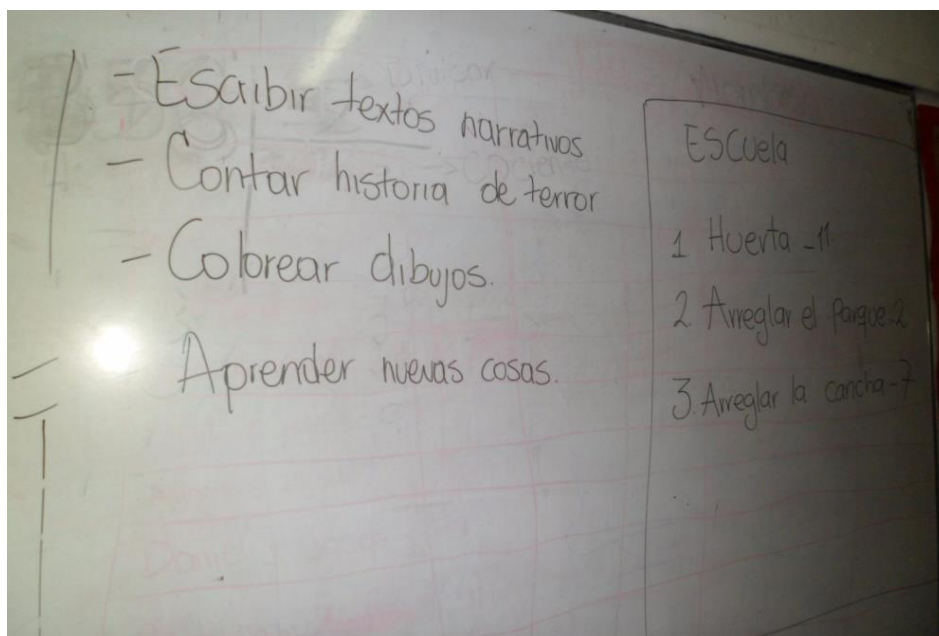 - Escribir textos narrativos
- Contar historia de terror
- Colorear dibujos.
Aprender nuevas cosas.
ESCuela
1 Huerta - 11
2 Arreglar el parque - 2
3. Arreglar la cancha - 7